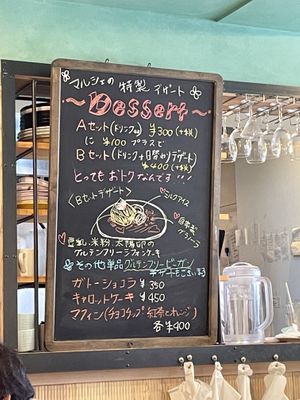 マルシェの特製デザート
~Dessert~
Aセット(ドリンク) ¥300(+税)
に¥100プラスで
Bセット(ドリンク+日替わりデザート)
¥400(+税)
とってもおトクなんです・・!
〈Bセットデザート〉
ミルクアイス
自家製グラノーラ
豆乳、米粉、太陽卵の
グルテンフリーシフォンケーキ
その他単品グルテンフリービーガン
デザートもございます
ガトーショコラ ¥350
キャロットケーキ ¥450
マフィン(チョコチップ 紅茶とオレンジ)
各¥400